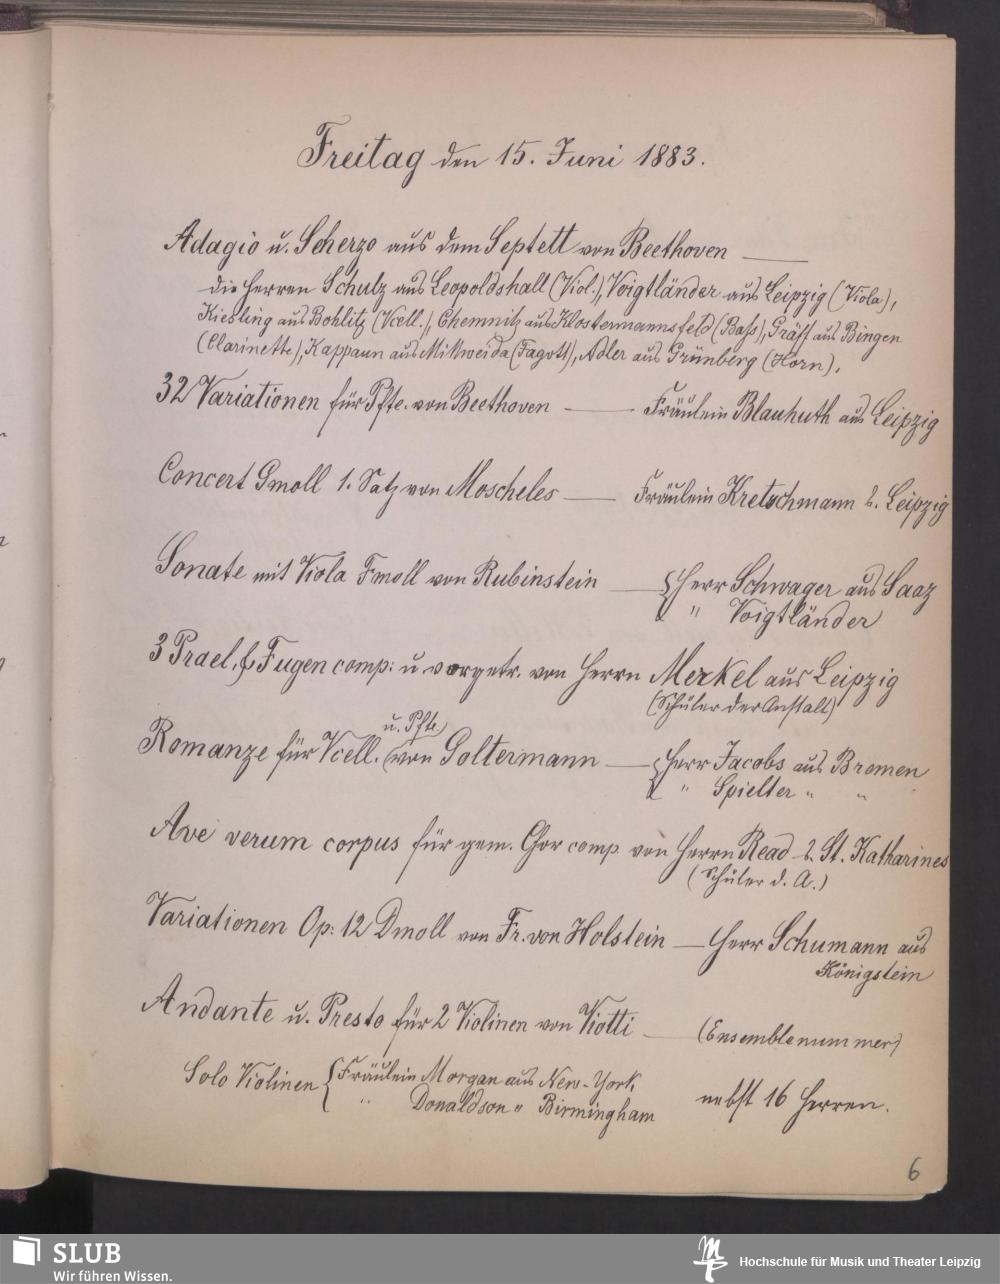 Freitag den 15. Juni 1883.
Adagio u. Scherzo aus dem Septett von Beethoven —
die Herren Schulz aus Leopoldshall (Viol.), Voigtländer aus Leipzig (Viola),
Kiesling aus Bohlitz (Vcell.), Chemnitz aus Klostermannsfeld (Baß), Gräff aus Bingen
(Clarinette), Kappaun aus Mittweida (Fagott), Adler aus Grünberg (Horn).
32 Variationen für Pfte. von Beethoven — Fräulein Blauhuth aus Leipzig
Concert Gmoll 1. Satz von Moscheles — Fräulein Kretschmann a. Leipzig
Sonate mit Viola Fmoll von Rubinstein — { Herr Schwager aus Saaz
" Voigtländer
3 Prael. & Fugen comp: u. vorgetr. von Herrn Merkel aus Leipzig
(Schüler der Anstalt)
u. Pfte
Romanze für Vcell. (von Goltermann — { Herr Jacobs aus Bremen
" Spielter " "
Ave verum corpus für gem. Chor comp von Herrn Read a. St. Katharines
(Schüler d. A.)
Variationen Op: 12 Dmoll von Fr. von Holstein — Herr Schumann aus
Königstein
Andante u. Presto für 2 Violinen von Viotti — (Ensemblenummer)
Solo Violinen { Fräulein Morgan aus New-York
" Donaldson " Birmingham nebst 16 Herren.
6
SLUB
Wir führen Wissen.
Hochschule für Musik und Theater Leipzig